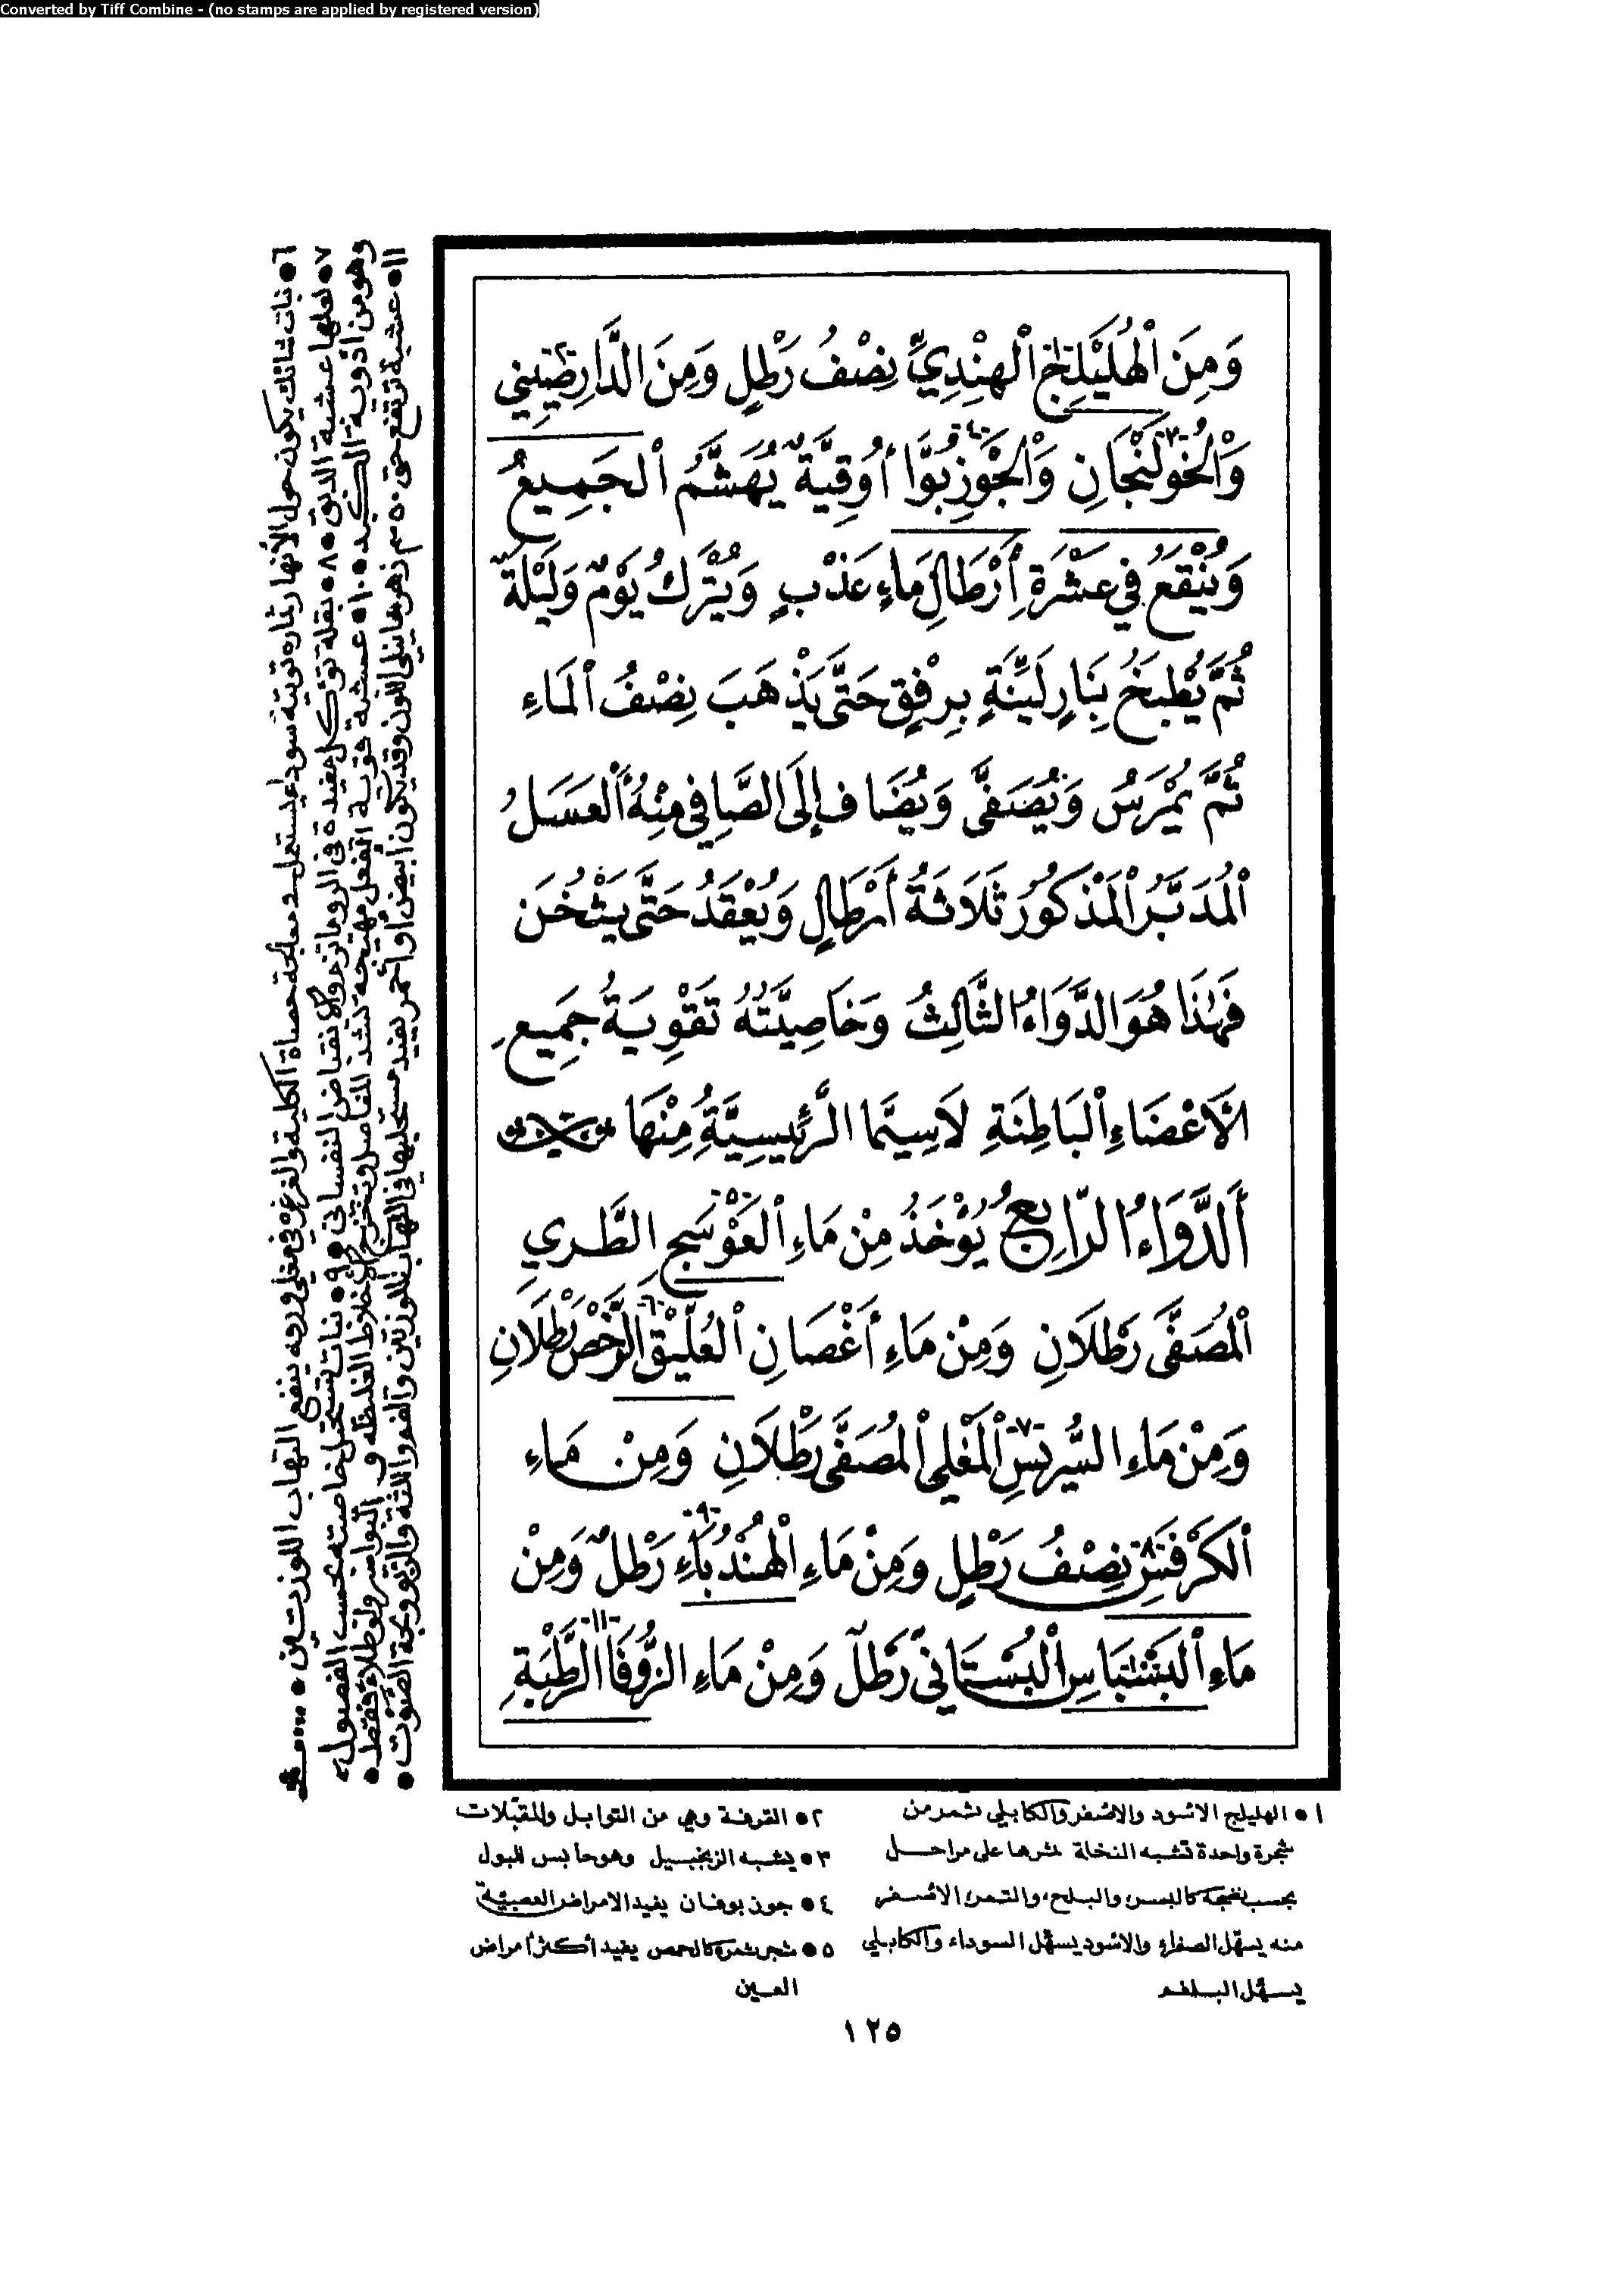 Converted by Tiff Combine - (no stamps are applied by registered version)
وَمِنَ ٱلْهُلَيْلِجِ ٱلْهِنْدِيِّ نِصْفُ رَطْلٍ وَمِنَ الدَّارِصِّينِي
وَٱلْخُولَنْجَانِ وَٱلْجَوْزِبُوَّا أُوقِيَّةٌ يُهَشَّمُ ٱلْجَمِيعُ
وَيُنْقَعُ فِي عَشْرَةِ أَرْطَالِ مَاءٍ عَذْبٍ وَيُتْرَكُ يَوْمٌ وَلَيْلَةٌ
ثُمَّ يُطْبَخُ بِنَارٍ لَيِّنَةٍ بِرِفْقٍ حَتَّى يَذْهَبَ نِصْفُ ٱلْمَاءِ
ثُمَّ يُمْرَسُ وَيُصَفَّى وَيُضَافُ إِلَى الصَّافِي مِنْهُ ٱلْعَسَلُ
ٱلْمُدَبَّرُ ٱلْمَذْكُورُ ثَلَاثَةُ أَرْطَالٍ وَيُعْقَدُ حَتَّى يَثْخُنَ
فَهٰذَا هُوَ الدَّوَاءُ الثَّالِثُ وَخَاصِيَّتُهُ تَقْوِيَةُ جَمِيعِ
الْأَعْضَاءِ ٱلْبَاطِنَةِ لَاسِيَّمَا الرَّئِيسِيَّةُ مِنْهَا
أَلدَّوَاءُ الرَّابِعُ يُؤْخَذُ مِنْ مَاءِ ٱلْعَوْسَجِ الطَّرِيِ
ٱلْمُصَفَّى رَطْلَانِ وَمِنْ مَاءِ أَغْصَانِ ٱلْعُلَّيْقِ الرَّخْصِ رَطْلَانِ
وَمِنْ مَاءِ السِّيرِيسِ ٱلْمَغْلِي ٱلْمُصَفَّى رَطْلَانِ وَمِنْ مَاءِ
ٱلْكَرَفْسِ نِصْفُ رَطْلٍ وَمِنْ مَاءِ ٱلْهِنْدُبَاءِ رَطْلٌ وَمِنْ
مَاءِ ٱلْبَسْبَاسِ ٱلْبُسْتَانِيِّ رَطْلٌ وَمِنْ مَاءِ الزُّوفَا الرَّطْبَةِ
١ • الهليلج الاسود والاصفر والكابلي ثمر من
شجرة واحدة تشبه النخلة ثمرها على مراحل
بحسب نضجه كالبسر والبلح، والتمر، الاصفر
منه يسهّل الصفراء والاسود يسهّل السوداء والكابلي
يسهّل البلغم
٢ • القرفة وهي من التوابل والمقبّلات
٣ • يشبه الزنجبيل وهو حابس للبول
٤ • جوز بوفان يفيد الامراض العصبيّة
٥ • شجر ثمره كالحمص يفيد أكثر أمراض
العين
٦ • نبات شائك يكون حول الأنهار ثماره توتية سوداء يستعمل في معالجة حصاة الكلية والغرغرة في مغلي ورقه ينفع التهاب اللوزتين •
٧ • لعلها عشبة الدبق • ٨ • بقلة تؤكل مفيدة في الروماتزم والانقباض النفساني • ٩ • نبات تستحيل خاصته بحسب الفصول
وهو من أدوية الكبد • ١٠ • عشبة قوية الفعل مهيّجة تشد المفاصل وتخرج الأخلاط الغليظة و البواسير لوطلاءً فقط •
١١ • عشبة ترتفع حتى ٥٠ سم زهرها نيلي اللون وقد يكون أبيض أو أحمر يفيد مستحلبها في التهاب اللوزتين والفم واللثة والربو وبحة الصوت •
١٢٥